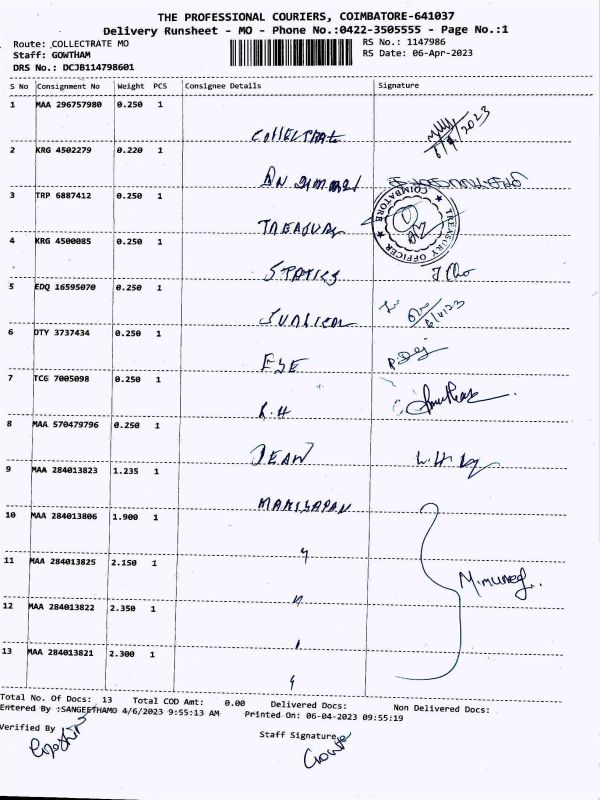 THE PROFESSIONAL COURIERS, COIMBATORE-641037
Delivery Runsheet - MO - Phone No.:0422-3505555 - Page No.:1
Route: COLLECTRATE MO RS No.: 1147986
Staff: GOWTHAM RS Date: 06-Apr-2023
DRS No.: DCJB114798601
S No Consignment No Weight PCS Consignee Details Signature
1 MAA 296757980 0.250 1
COLLECTRATE 6/4/2023
2 KRG 4502279 0.220 1
3 TRP 6887412 0.250 1
TREASURY
TREASURY OFFICER COIMBATORE
4 KRG 4500085 0.250 1
STATICS
5 EDQ 16595070 0.250 1
6/4/23
6 DTY 3737434 0.250 1
ESE
7 TCG 7005098 0.250 1
R.H
8 MAA 570479796 0.250 1
DEAN
9 MAA 284013823 1.235 1
10 MAA 284013806 1.900 1
11 MAA 284013825 2.150 1
12 MAA 284013822 2.350 1
13 MAA 284013821 2.300 1
Total No. Of Docs: 13 Total COD Amt: 0.00 Delivered Docs: Non Delivered Docs:
Entered By :SANGEETHAMO 4/6/2023 9:55:13 AM Printed On: 06-04-2023 09:55:19
Verified By Staff Signature